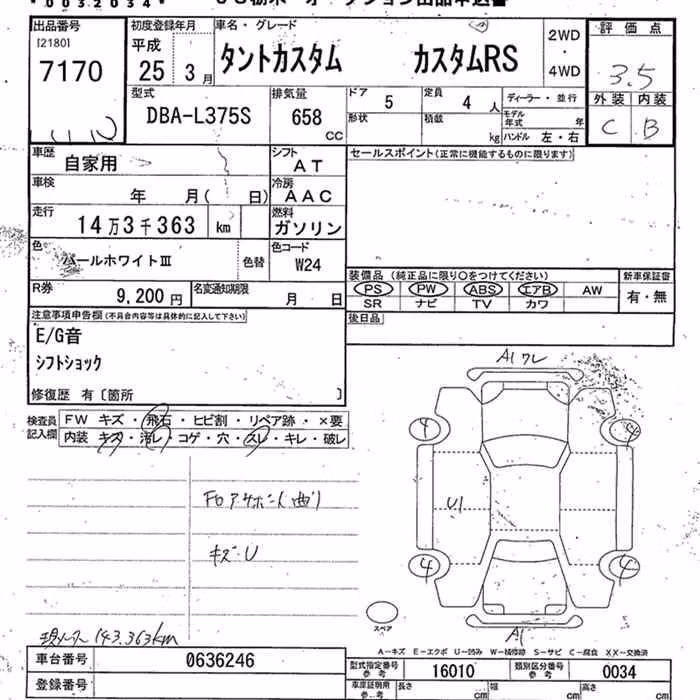 出品番号
[2180]
7170
初度登録年月
平成
25 3月
車名・グレード
タントカスタム カスタムRS
2WD
・
4WD
評価点
3.5
外装 内装
C B
型式
DBA-L375S
排気量
658
CC
ドア
5
定員
4 人
ディーラー・並行
形状
積載
kg
モデル年式 年
ハンドル 左・右
車歴
自家用
シフト
AT
セールスポイント(正常に機能するものに限ります)
車検
年 月( 日)
冷房
AAC
走行
14万3千363 km
燃料
ガソリン
色
パールホワイトⅢ
色替
色コード
W24
R券
9,200円
名変通知期限
月 日
装備品 (純正品に限り○をつけてください)
PS PW ABS エアB AW
SR ナビ TV カワ
新車保証書
有・無
後日品
注意事項申告欄(不具合内容等は具体的に記入して下さい)
E/G音
シフトショック
修復歴 有〔箇所 〕
検査員記入欄
FW キズ・飛石・ヒビ割・リペア跡・×要
内装 キズ・汚レ・コゲ・穴・スレ・キレ・破レ
A1 ワレ
4 4
U1
キズ・U
4 4
スペア
A1
A－キズ E－エクボ U－凹み W－補修跡 S－サビ C－腐食 XX－交換済
143,363km
車台番号
0636246
型式指定番号
参考
16010
類別区分番号
参考
0034
登録番号
車庫証明用
参考
長さ cm
幅 cm
高さ cm